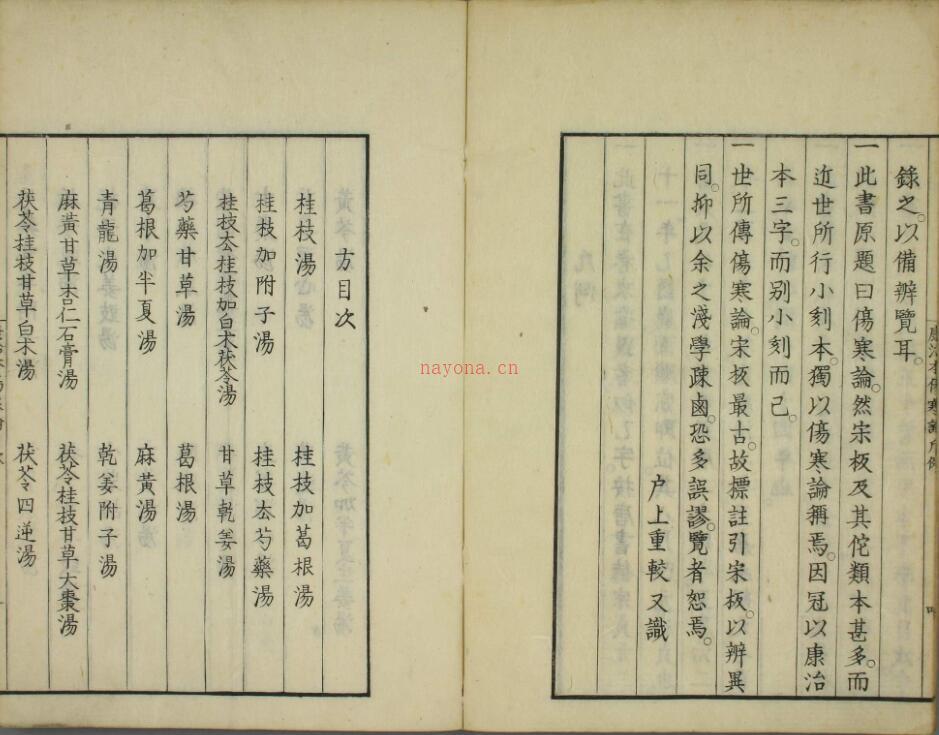 錄之。以備辨覽耳。
一此書原題曰傷寒論。然宋板及其佗類本甚多。而
近世所行小刻本。獨以傷寒論稱焉。因冠以康治
本三字。而别小刻而己。
一世所傳傷寒論。宋板最古。故標註引宋板。以辨異
同。抑以余之淺學疎鹵。恐多誤謬。覽者恕焉。
户上重較又識
方目次
桂枝湯 桂枝加葛根湯
桂枝加附子湯 桂枝厺芍藥湯
桂枝厺桂枝加白朮茯苓湯 甘草乾姜湯
芍藥甘草湯 葛根湯
葛根加半夏湯 麻黃湯
青龍湯 乾姜附子湯
麻黃甘草杏仁石膏湯 茯苓桂枝甘草大棗湯
茯苓桂枝甘草白朮湯 茯苓四逆湯
nayona.cn